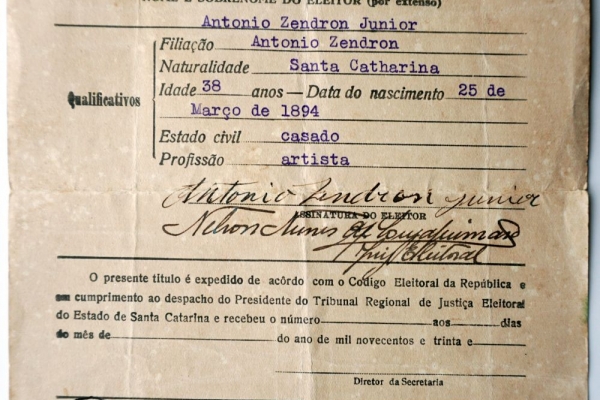 NOME E SOBRENOME DO ELEITOR (por extenso)
Antonio Zendron Junior
Filiação Antonio Zendron
Naturalidade Santa Catharina
Qualificativos
Idade 38 anos — Data do nascimento 25 de
Março de 1894
Estado civil casado
Profissão artista
Antonio Zendron junior
ASSINATURA DO ELEITOR
Nelson Nunes
Juiz Eleitoral
O presente titulo é expedido de acôrdo com o Codigo Eleitoral da República e
em cumprimento ao despacho do Presidente do Tribunal Regional de Justiça Eleitoral
do Estado de Santa Catarina e recebeu o número aos dias
do mês de do ano de mil novecentos e trinta e
Diretor da Secretaria